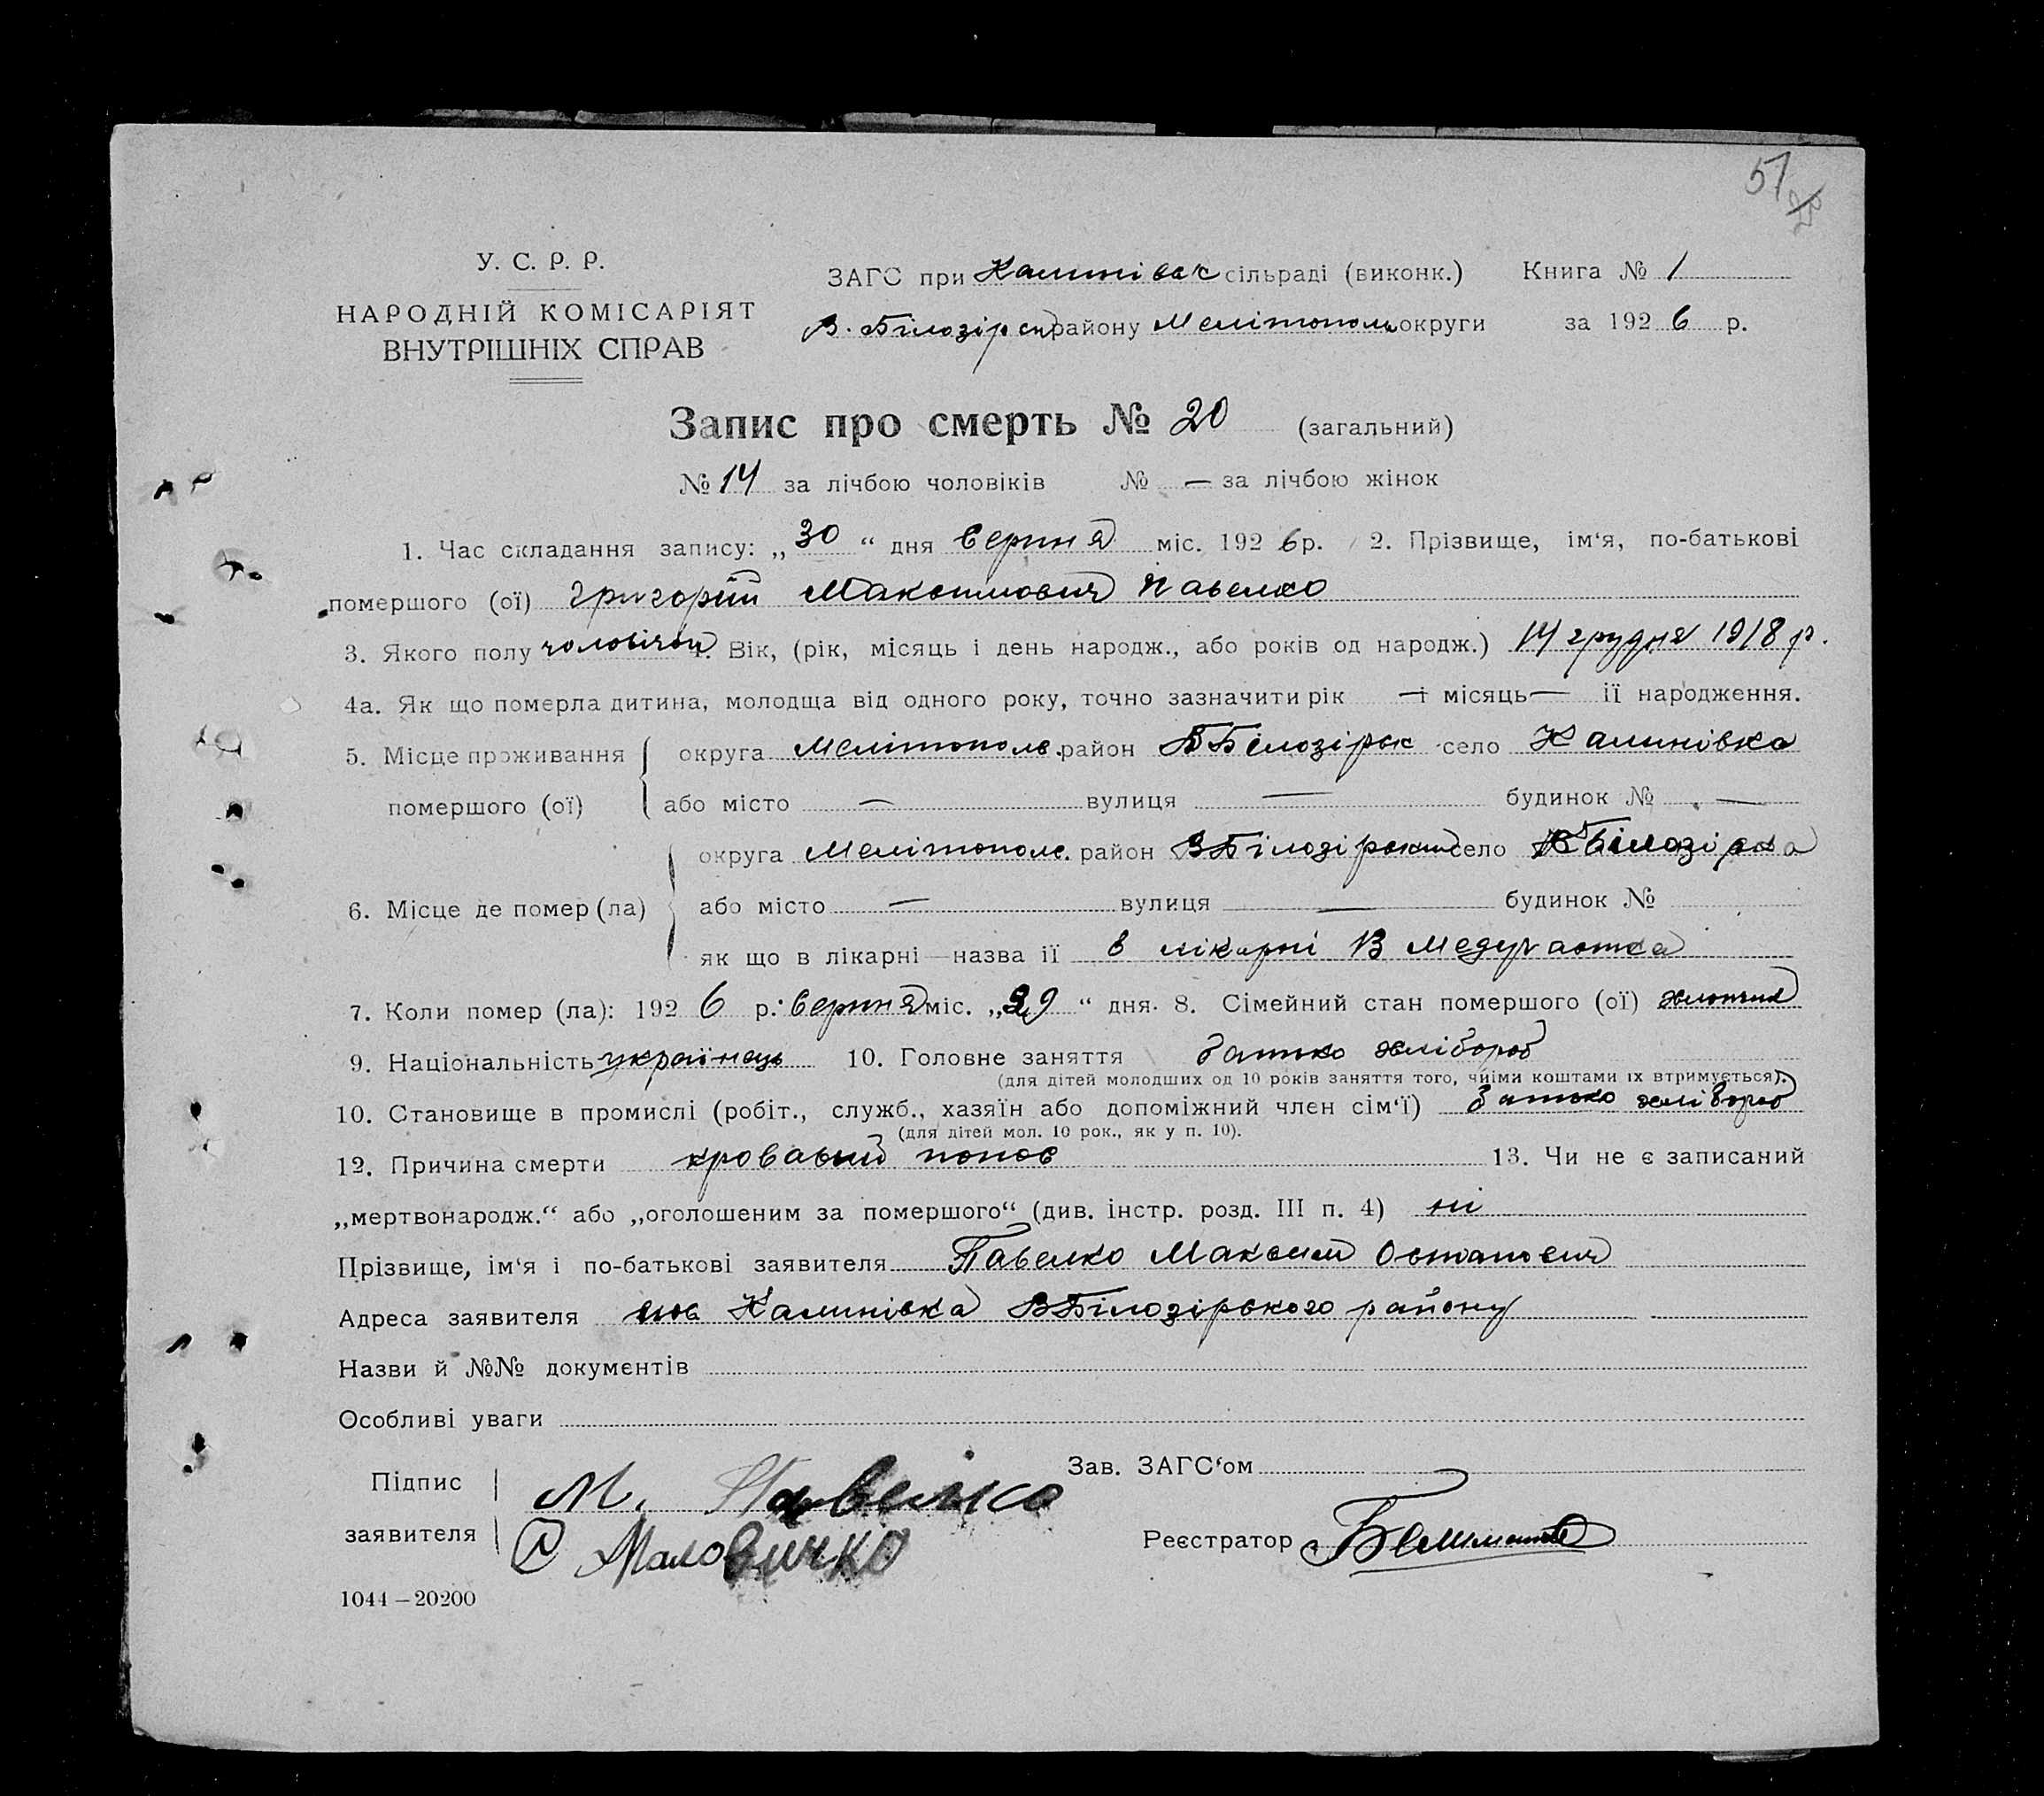 51
У. С. Р. Р.
НАРОДНІЙ КОМІСАРІЯТ
ВНУТРІШНІХ СПРАВ
ЗАГС при Калинівськ сільраді (виконк.) Книга № 1
В. Білозірськ району Мелітополь округи за 1926 р.
Запис про смерть № 20 (загальний)
№ 14 за лічбою чоловіків № — за лічбою жінок
1. Час складання запису: „30“ дня серпня міс. 1926 р. 2. Прізвище, ім‘я, по-батькові
помершого (ої) Григорій Максимович Павелко
3. Якого полу чоловічої 4. Вік, (рік, місяць і день народж., або років од народж.) 14 грудня 1918 р.
4а. Як що померла дитина, молодща від одного року, точно зазначити рік — і місяць — її народження.
5. Місце проживання округа Мелітополь. район ВБілозірськ село Калинівка
помершого (ої) або місто — вулиця — будинок № —
округа Мелітополь. район ВБілозірський село ВБілозірка
6. Місце де помер (ла) або місто — вулиця — будинок №
як що в лікарні — назва її в лікарні В Медучастка
7. Коли помер (ла): 1926 р. серпня міс. „29“ дня. 8. Сімейний стан помершого (ої) хлопчик
9. Національність українець 10. Головне заняття батько хлібороб
(для дітей молодших од 10 років заняття того, чиїми коштами їх втримується).
10. Становище в промислі (робіт., служб., хазяїн або допоміжний член сім‘ї) батько хлібороб
(для дітей мол. 10 рок., як у п. 10).
12. Причина смерти кровавий понос 13. Чи не є записаний
„мертвонародж.“ або „оголошеним за помершого“ (див. інстр. розд. III п. 4) ні
Прізвище, ім‘я і по-батькові заявителя Павелко Максим Остапович
Адреса заявителя Калинівка ВБілозірського району
Назви й №№ документів
Особливі уваги
Зав. ЗАГС‘ом
Підпис М. Павелко
заявителя Маловичко
Реєстратор
1044 – 20200